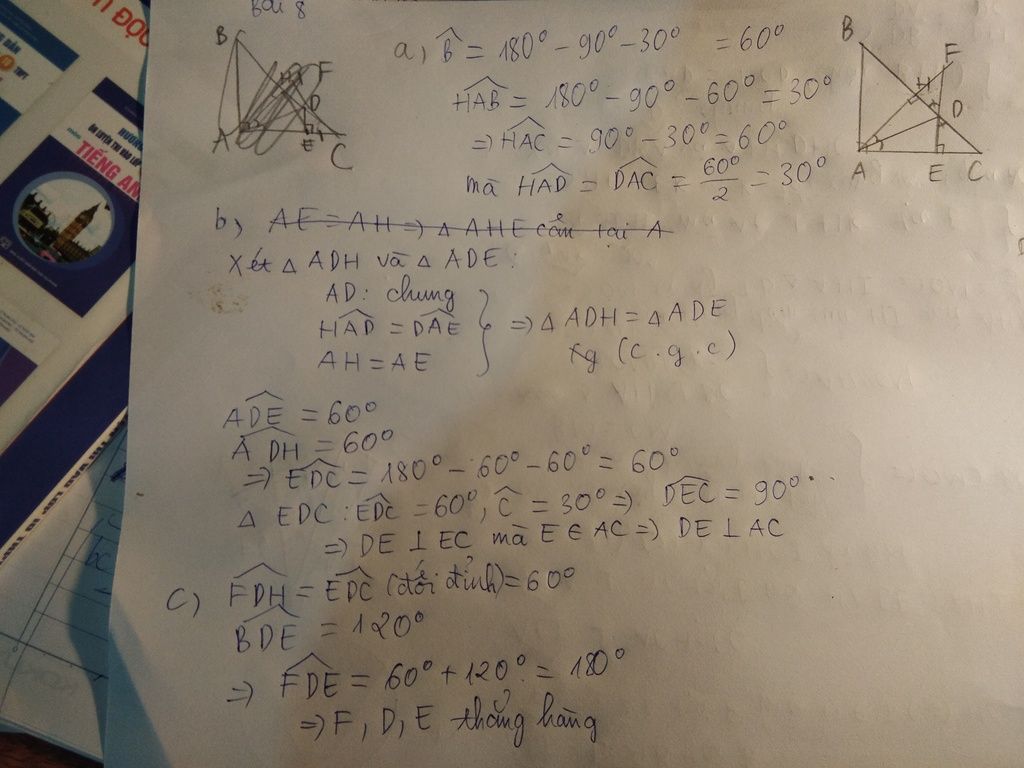 Bài 8
a) B̂ = 180° - 90° - 30° = 60°
HAB = 180° - 90° - 60° = 30°
⇒ HAC = 90° - 30° = 60°
mà HAD = DAC = 60°/2 = 30°
B
F
H
D
A
E
C
B
F
H
D
A
E
C
b) AE = AH ⇒ △ AHE cân tại A
Xét △ ADH và △ ADE:
AD: chung
HAD = DAE
AH = AE
⇒ △ ADH = △ ADE
(c.g.c)
ADE = 60°
ADH = 60°
⇒ EDC = 180° - 60° - 60° = 60°
△ EDC: EDC = 60°, Ĉ = 30° ⇒ DEC = 90°
⇒ DE ⊥ EC mà E ∈ AC ⇒ DE ⊥ AC
c) FDH = EDC (đối đỉnh) = 60°
BDE = 120°
⇒ FDE = 60° + 120° = 180°
⇒ F, D, E thẳng hàng
TIẾNG AN